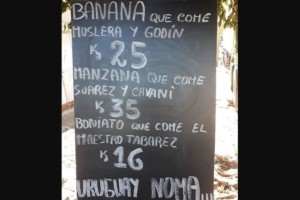 BANANA QUE COME
MUSLERA Y GODÍN
K$ 25
MANZANA QUE COME
SUAREZ Y CAVANI
K$ 35
BONIATO QUE COME EL
MAESTRO TABAREZ
K$ 16
URUGUAY NOMA...